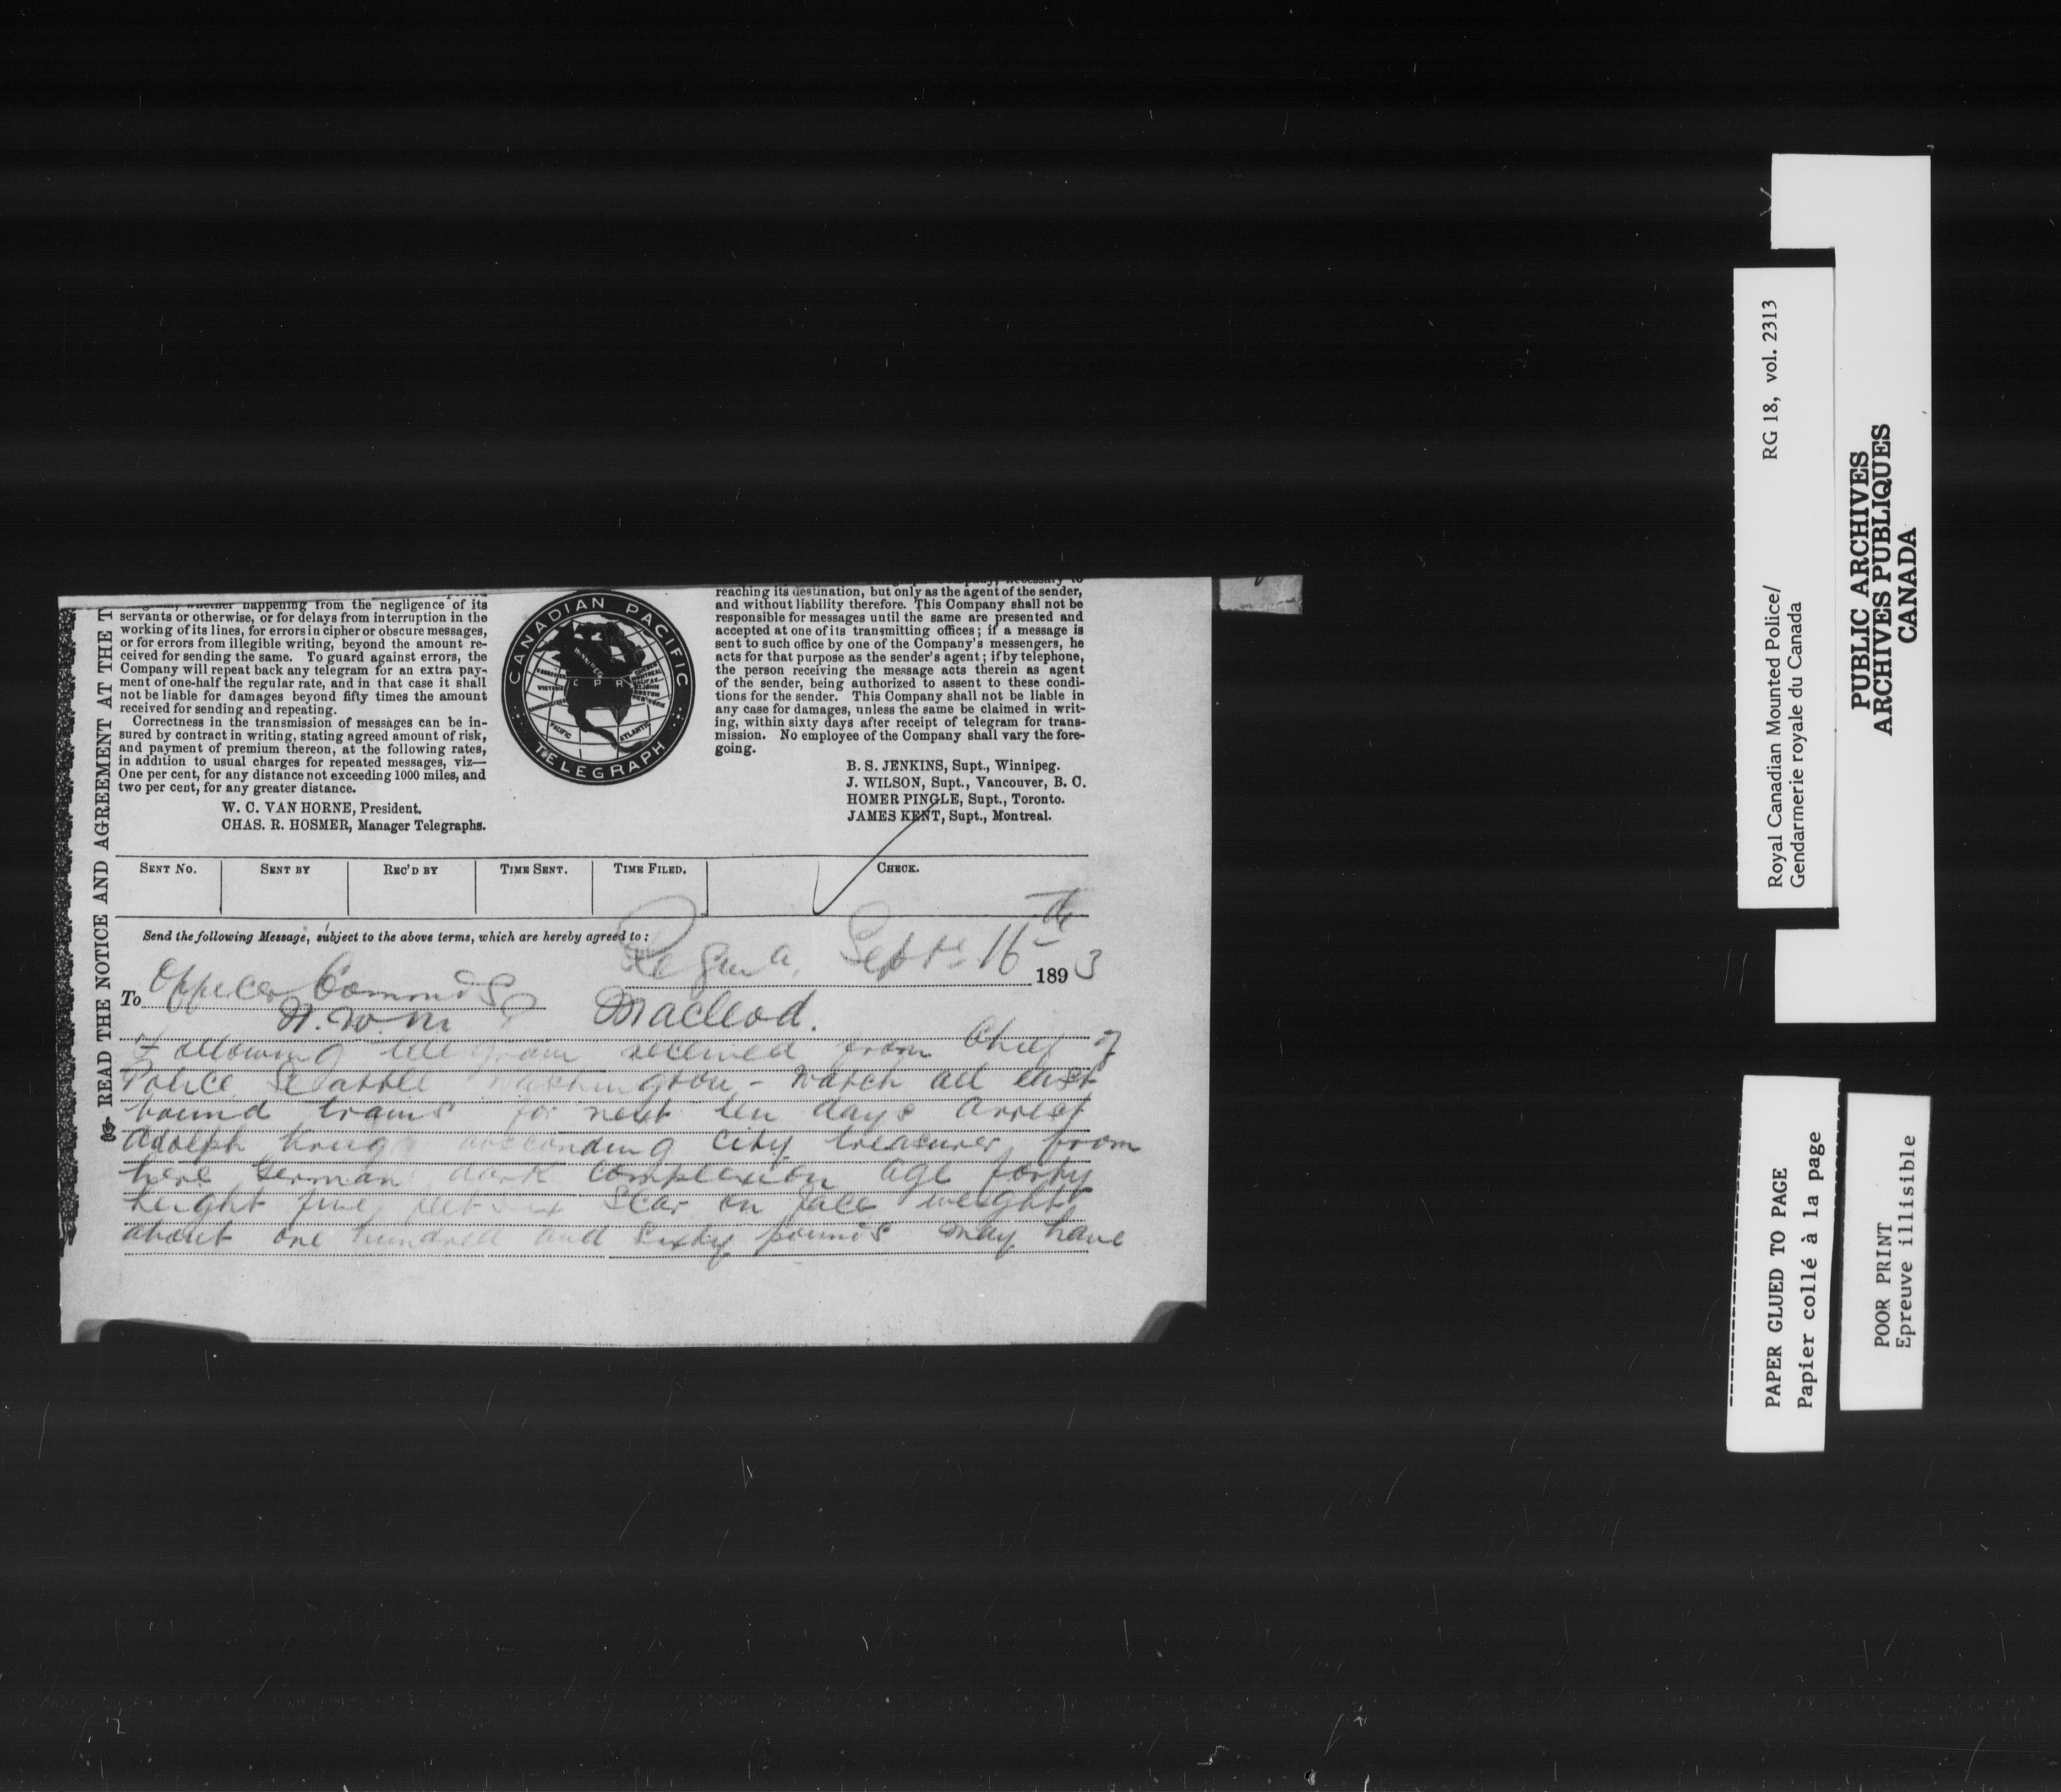 READ THE NOTICE AND AGREEMENT AT THE T
whether happening from the negligence of its
servants or otherwise, or for delays from interruption in the
working of its lines, for errors in cipher or obscure messages,
or for errors from illegible writing, beyond the amount re-
ceived for sending the same. To guard against errors, the
Company will repeat back any telegram for an extra pay-
ment of one-half the regular rate, and in that case it shall
not be liable for damages beyond fifty times the amount
received for sending and repeating.
Correctness in the transmission of messages can be in-
sured by contract in writing, stating agreed amount of risk,
and payment of premium thereon, at the following rates,
in addition to usual charges for repeated messages, viz—
One per cent, for any distance not exceeding 1000 miles, and
two per cent, for any greater distance.
W. C. VAN HORNE, President.
CHAS. R. HOSMER, Manager Telegraphs.
CANADIAN PACIFIC
WINNIPEG
VICTORIA
C P R
BOSTON
NEW YORK
PACIFIC
ATLANTIC
TELEGRAPH
necessary to
reaching its destination, but only as the agent of the sender,
and without liability therefore. This Company shall not be
responsible for messages until the same are presented and
accepted at one of its transmitting offices; if a message is
sent to such office by one of the Company's messengers, he
acts for that purpose as the sender's agent; if by telephone,
the person receiving the message acts therein as agent
of the sender, being authorized to assent to these condi-
tions for the sender. This Company shall not be liable in
any case for damages, unless the same be claimed in writ-
ing, within sixty days after receipt of telegram for trans-
mission. No employee of the Company shall vary the fore-
going.
B. S. JENKINS, Supt., Winnipeg.
J. WILSON, Supt., Vancouver, B. C.
HOMER PINGLE, Supt., Toronto.
JAMES KENT, Supt., Montreal.
SENT NO. SENT BY REC'D BY TIME SENT. TIME FILED. CHECK.
Send the following Message, subject to the above terms, which are hereby agreed to:
Regina, Septr 16th 1893
To Officer Commdg
N.W.M P Macleod.
Following telegram received from Chief of
Police Seattle Washington - Watch all east
bound trains for next ten days arrest
Adolph Krug absconding city treasurer from
here German dark complexion age forty
height five feet six scar on face weight
about one hundred and sixty pounds may have
Royal Canadian Mounted Police/ RG 18, vol. 2313
Gendarmerie royale du Canada
PUBLIC ARCHIVES
ARCHIVES PUBLIQUES
CANADA
PAPER GLUED TO PAGE
Papier collé à la page
POOR PRINT
Epreuve illisible